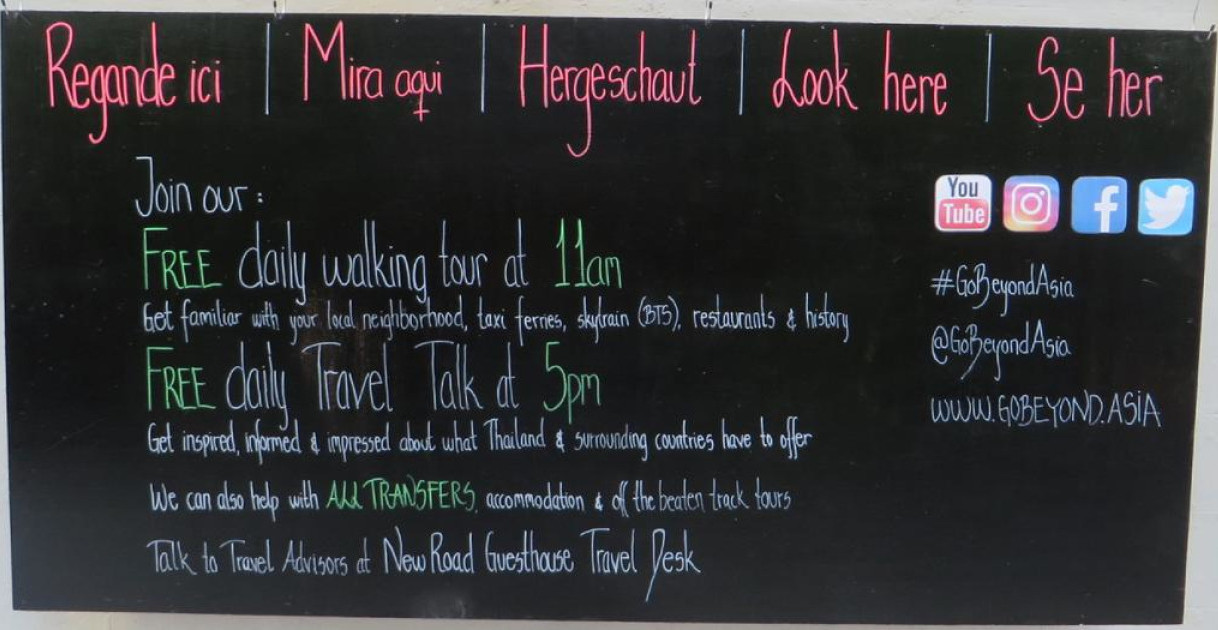 Regande ici | Mira aqui | Hergeschaut | Look here | Se her
Join our:
FREE daily walking tour at 11am
Get familiar with your local neighborhood, taxi ferries, skytrain (BTS), restaurants & history
FREE daily Travel Talk at 5pm
Get inspired, informed & impressed about what Thailand & surrounding countries have to offer
We can also help with ALL TRANSFERS, accommodation & off the beaten track tours
Talk to Travel Advisors at New Road Guesthouse Travel Desk
You
Tube
#GoBeyondAsia
@GoBeyondAsia
WWW.GOBEYOND.ASiA